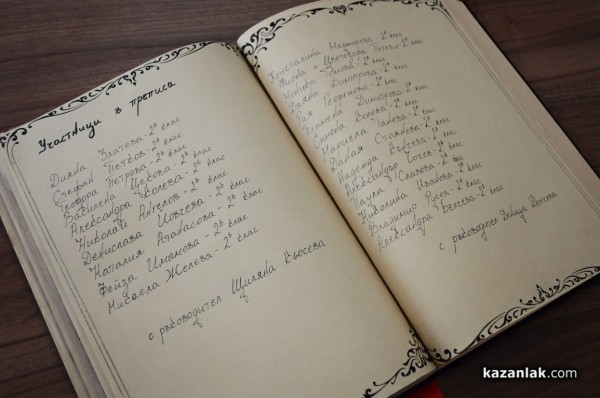 Участници в преписа
Дияна Златева - 2б клас
Стефан Петков - 2б клас
Теодора Петрова - 2б клас
Василена Цекова - 2б клас
Александра Жолева - 2б клас
Николай Ангелов - 2б клас
Денислава Йовчева - 2б клас
Наталия Атанасова - 2б клас
Фейза Имамова - 2б клас
Михаела Желева - 2б клас
с ръководител Щиляна Кьосева
Кристалина - 2а клас
Жияна и Цветодара - 2а клас
Моника - 2а клас
Даяна Димитрова - 2а клас
Рая Георгиева - 2а клас
Пламена Димитрова - 2а клас
Симона Колева - 2а клас
Мариела Ганева - 2а клас
Даная Стоянова - 2а клас
Надежда - 2а клас
Александър - 2а клас
Паула Славова - 2а клас
Николина Иванова - 2а клас
Владимир Русев - 2а клас
Александра Венева - 2а клас
с ръководител
kazanlak.com